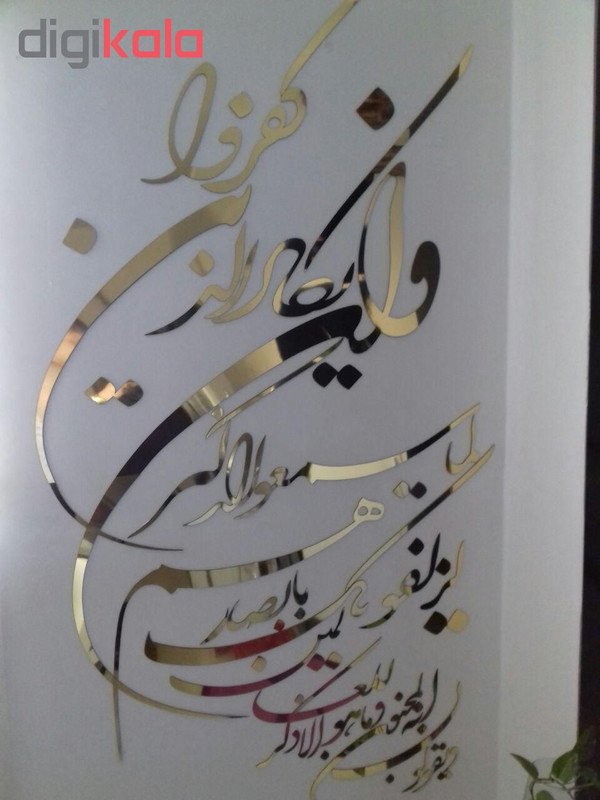 digikala
وان یکاد الذین
کفروا
لیزلقونک
بابصارهم
لما سمعوا الذکر
و یقولون
انه لمجنون
و ما هو الا ذکر
للعالمین